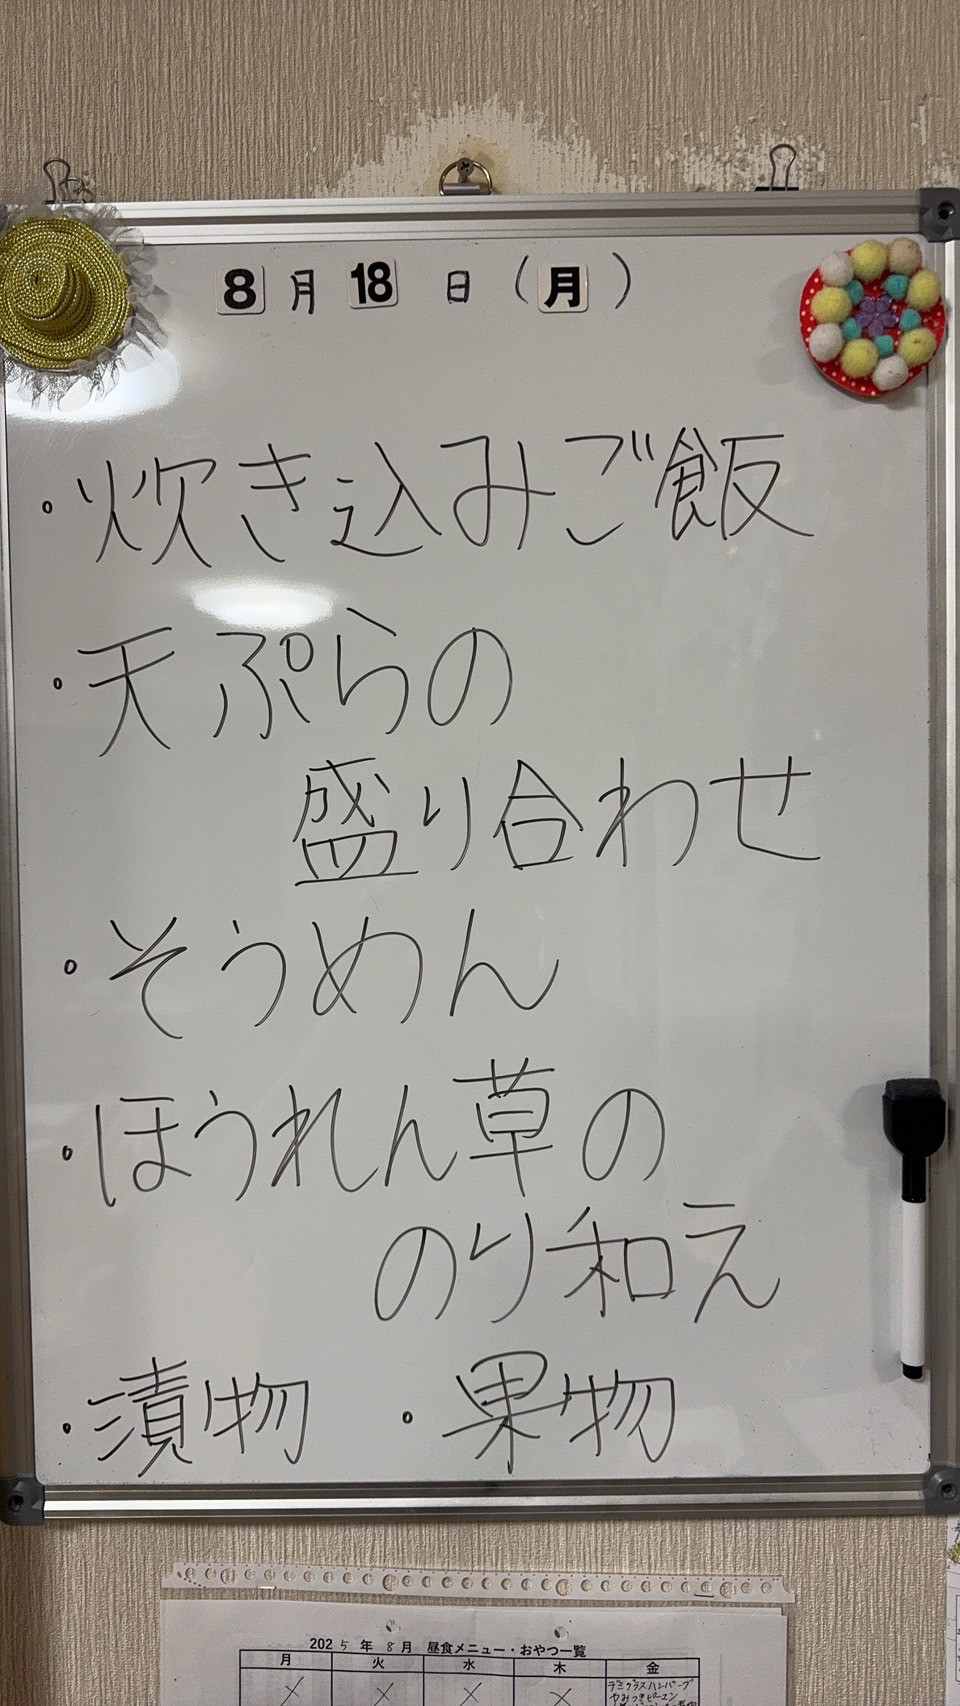 8月18日(月)
・炊き込みご飯
・天ぷらの
盛り合わせ
・そうめん
・ほうれん草の
のり和え
・漬物 ・果物
2025年8月 昼食メニュー・おやつ一覧
月 火 水 木 金
デミグラスハンバーグ